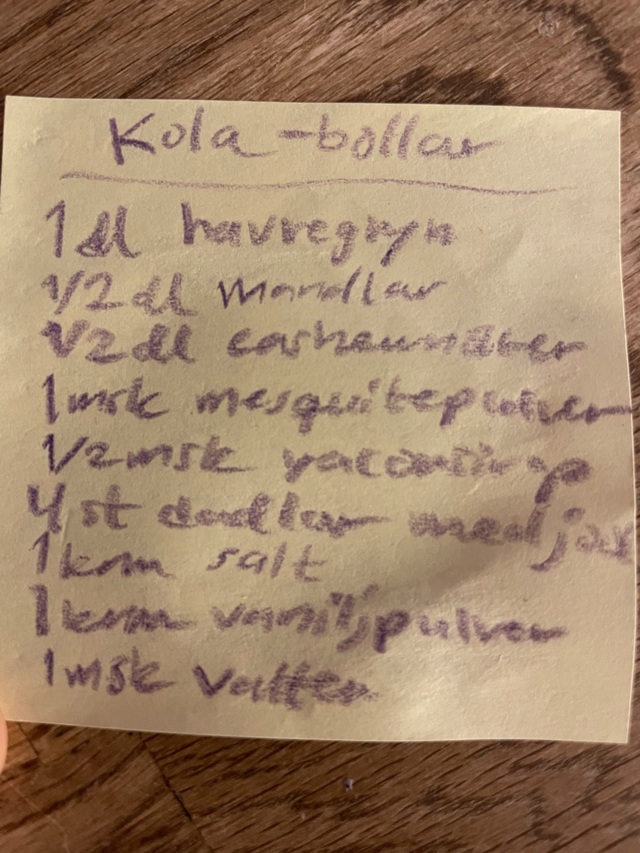 Kola-bollar
1 dl havregryn
1/2 dl mandlar
1/2 dl cashewnötter
1 msk mesquitepulver
1/2 msk yaconsirap
4 st dadlar medjox
1 krm salt
1 krm vaniljpulver
1 msk vatten